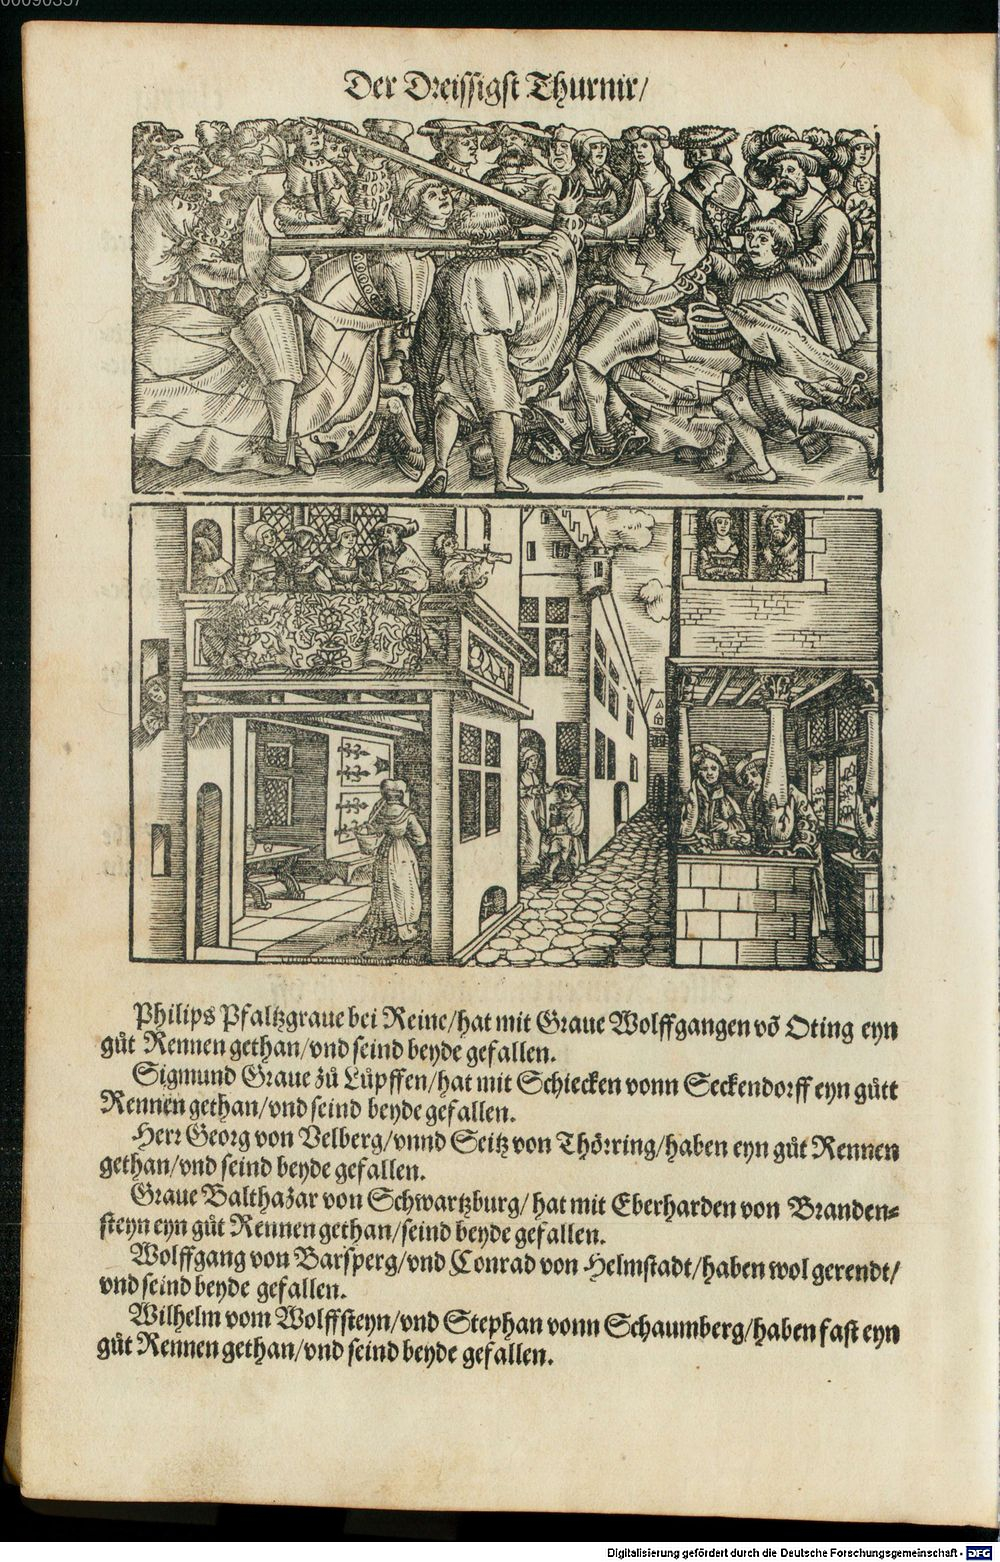 00090357
Der Dreissigst Thurnir/
Philips Pfaltzgraue bei Reine/hat mit Graue Wolffgangen võ Oting eyn
gůt Rennen gethan/vnd seind beyde gefallen.
Sigmund Graue zů Lůpffen/hat mit Schiecken vonn Seckendorff eyn gůtt
Rennen gethan/vnd seind beyde gefallen.
Herr Georg von Velberg/vnnd Seitz von Thörring/haben eyn gůt Rennen
gethan/vnd seind beyde gefallen.
Graue Balthazar von Schwartzburg/ hat mit Eberharden von Branden⸗
steyn eyn gůt Rennen gethan/seind beyde gefallen.
Wolffgang von Barsperg/vnd Conrad von Helmstadt/haben wol gerendt/
vnd seind beyde gefallen.
Wilhelm vom Wolffsteyn/vnd Stephan vonn Schaumberg/haben fast eyn
gůt Rennen gethan/vnd seind beyde gefallen.
Digitalisierung gefördert durch die Deutsche Forschungsgemeinschaft - DFG